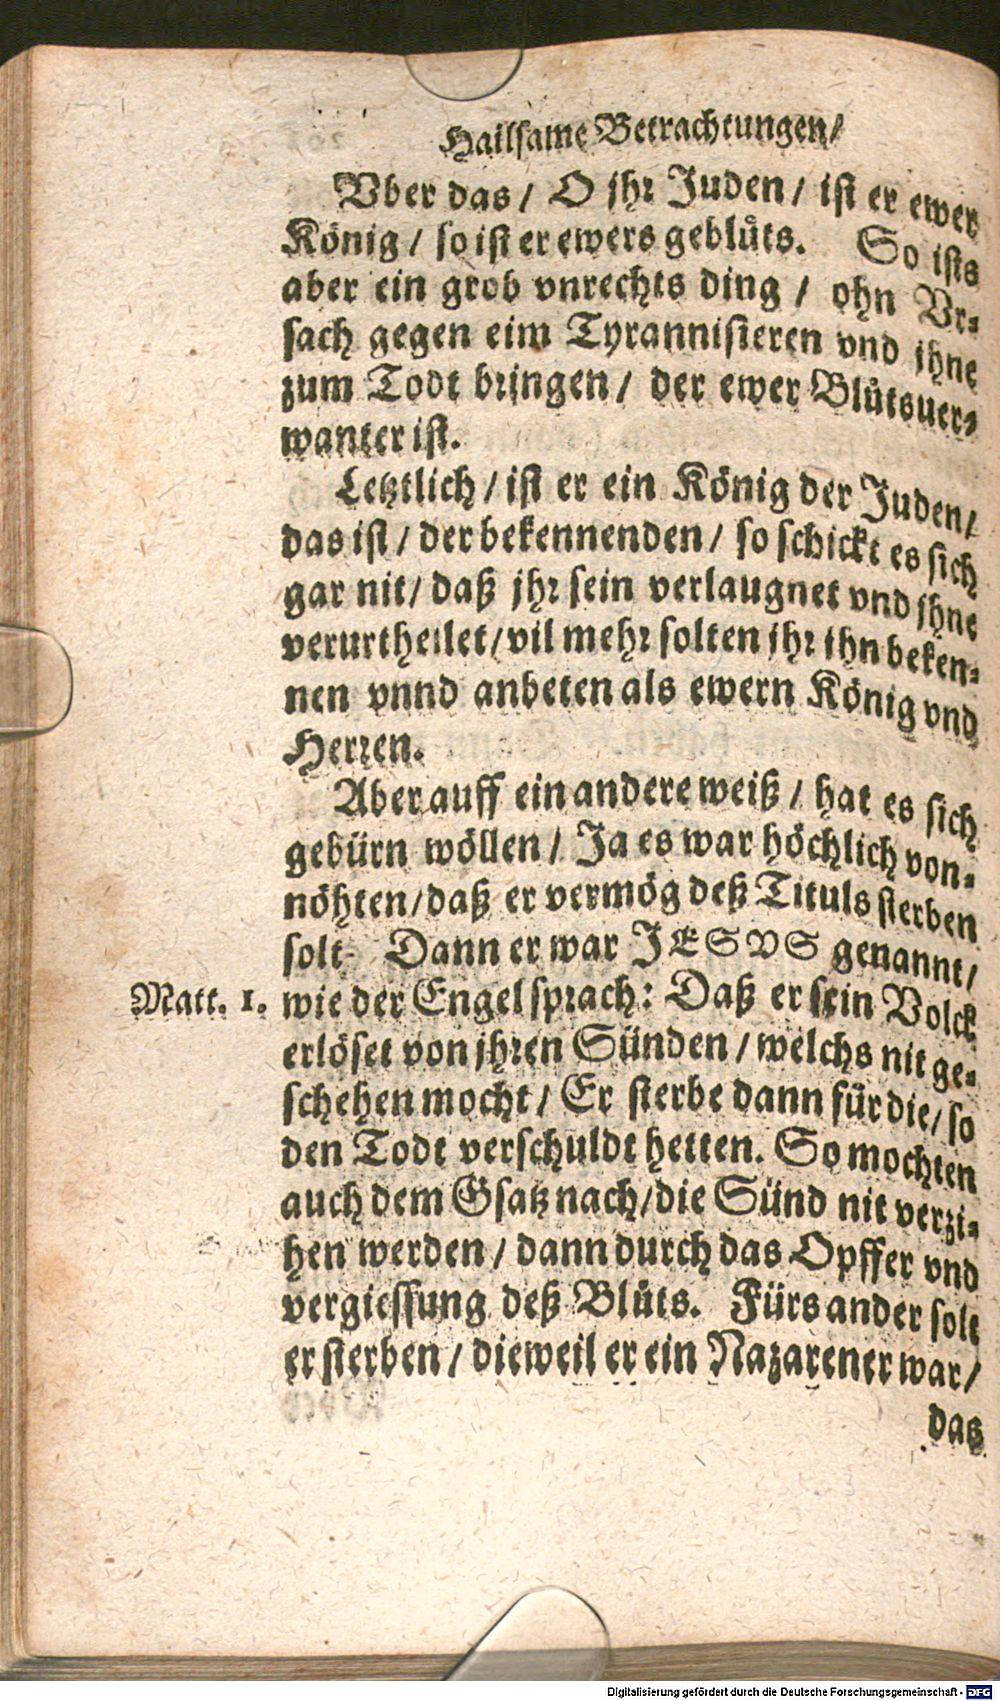 Hailsame Betrachtungen/
Vber das / O jhr Juden / ist er ewer
König / so ist er ewers geblůts. So ists
aber ein grob vnrechts ding / ohn Vr-
sach gegen eim Tyrannisieren vnd jhne
zum Todt bringen / der ewer Blůtsuer-
wanter ist.
Letztlich / ist er ein König der Juden /
das ist / der bekennenden / so schickt es sich
gar nit / daß jhr sein verlaugnet vnd jhne
verurtheilet / vil mehr solten jhr ihn beken-
nen vnnd anbeten als ewern König vnd
Herren.
Aber auff ein andere weiß / hat es sich
gebürn wöllen / Ja es war höchlich von-
nöhten / daß er vermög deß Tituls sterben
solt. Dann er war JESVS genannt /
Matt. 1. wie der Engel sprach: Daß er sein Volck
erlöset von jhren Sünden / welchs nit ge-
schehen mocht / Er sterbe dann für die / so
den Todt verschuldt hetten. So mochten
auch dem Gsatz nach / die Sünd nit verzi-
hen werden / dann durch das Opffer vnd
vergiessung deß Blůts. Fürs ander solt
er sterben / dieweil er ein Nazarener war /
das
Digitalisierung gefördert durch die Deutsche Forschungsgemeinschaft - DFG